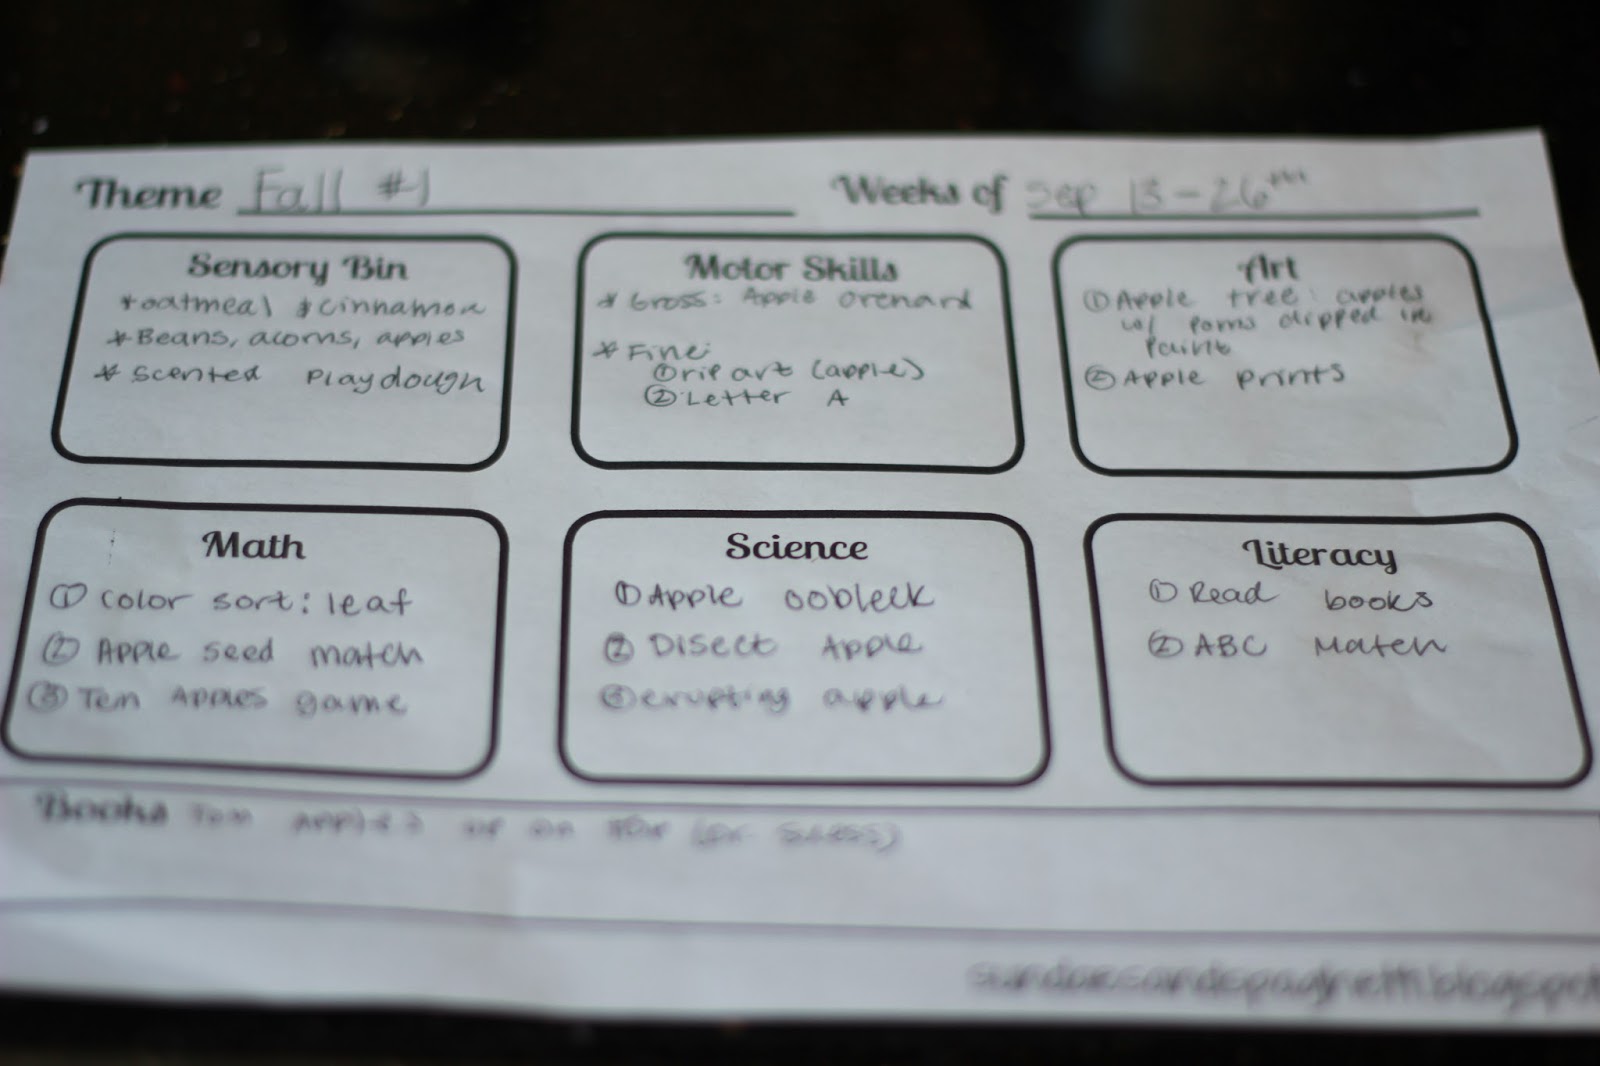 Theme Fall #1
Weeks of Sep 13-26th
Sensory Bin
*oatmeal & cinnamon
*Beans, acorns, apples
*scented playdough
Motor Skills
*Gross: Apple orchard
*Fine:
①rip art (apple)
②Letter A
Art
①Apple tree: apples
w/ poms dipped in
paint
②Apple prints
Math
①color sort: leaf
②Apple seed match
③Ten Apples game
Science
①Apple oobleck
②Disect Apple
③erupting apple
Literacy
①Read books
②ABC Match
Books Ten apples up on top (Dr. Suess)
sundaesandspaghetti.blogspot